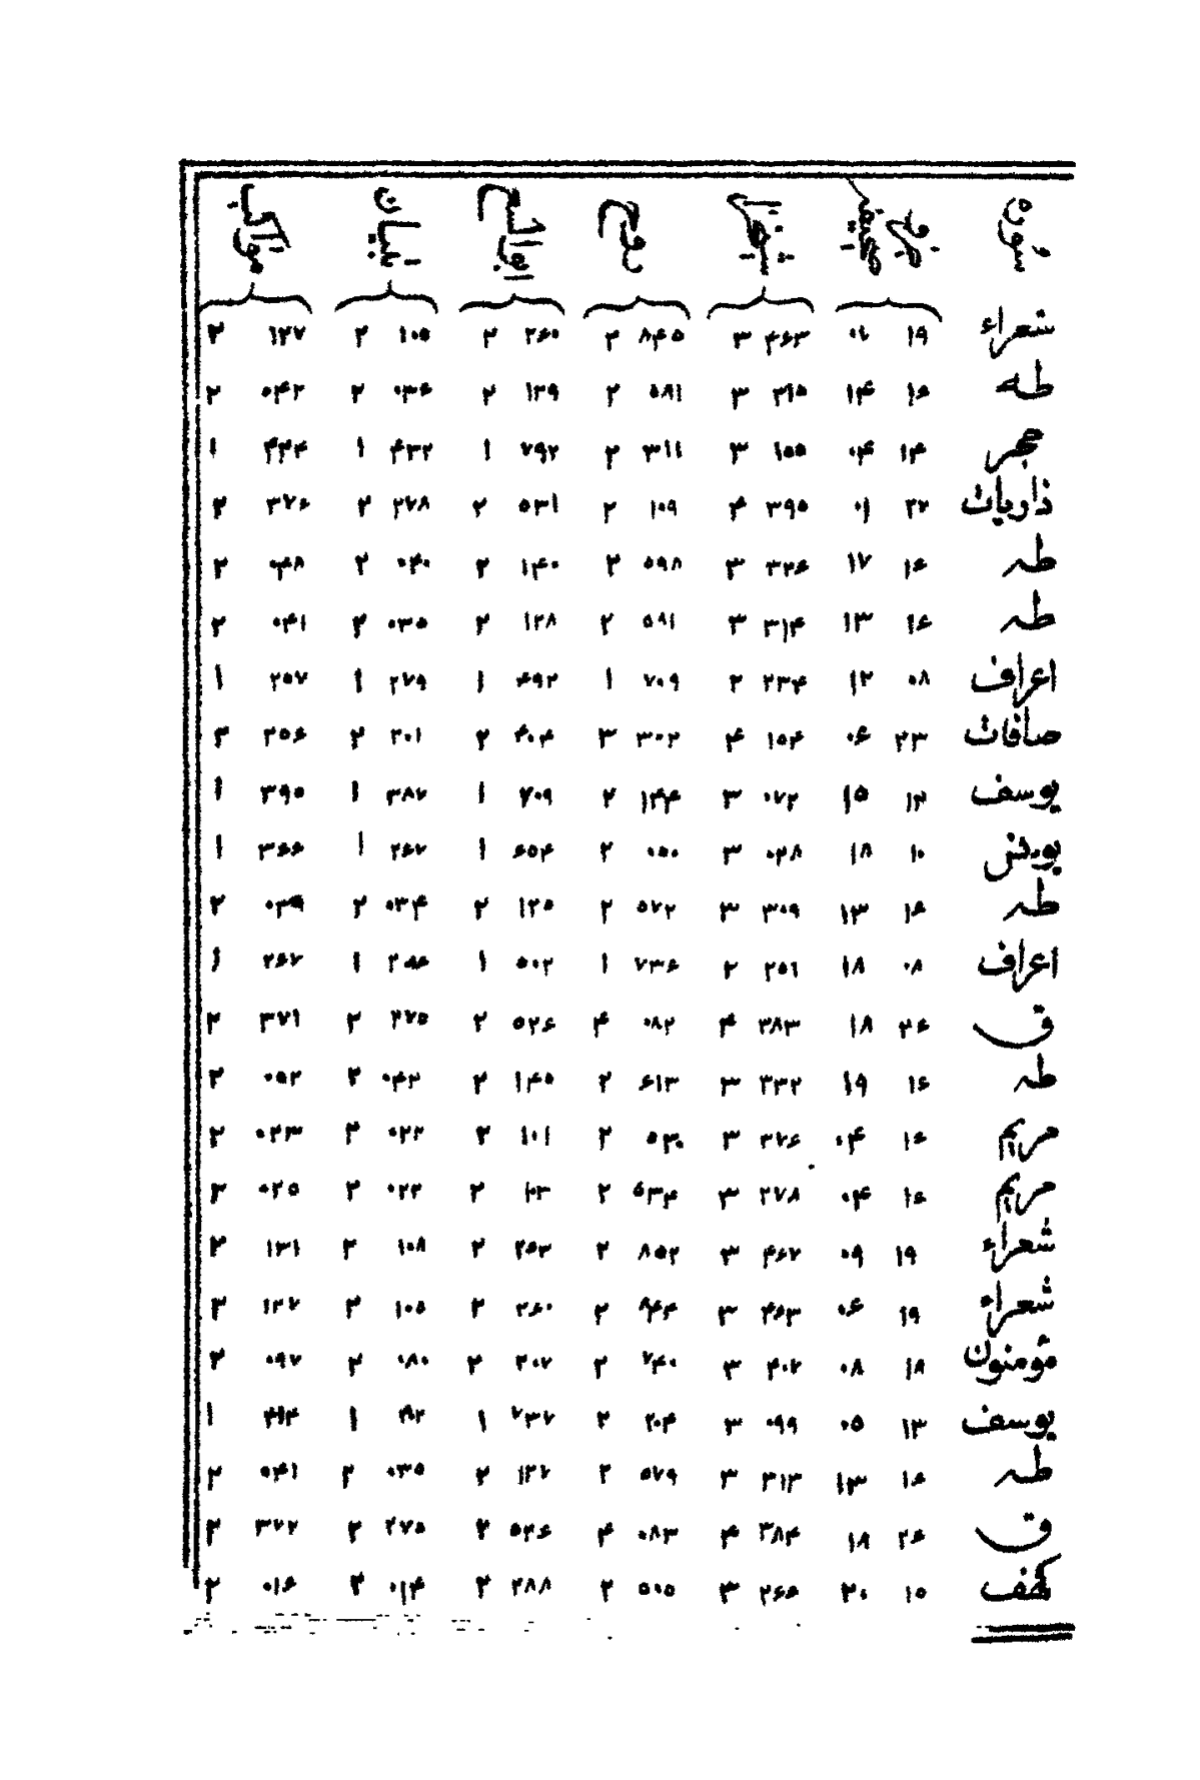 سوره جزو صحیفه شیخزاده روح ابوالسعود تبیان مواکب
شعراء ۱۹ ۰۶ ۴۶۳ ۳ ۸۴۵ ۲ ۲۶۰ ۲ ۱۰۵ ۲ ۱۲۷ ۲
طه ۱۶ ۱۴ ۳۱۵ ۳ ۵۸۱ ۲ ۱۳۹ ۲ ۰۳۶ ۲ ۰۴۲ ۲
حجر ۱۴ ۰۴ ۱۵۵ ۳ ۳۱۱ ۲ ۷۹۲ ۱ ۴۳۲ ۱ ۴۴۴ ۱
ذاریات ۲۷ ۰۱ ۳۹۵ ۴ ۱۰۹ ۲ ۵۳۱ ۲ ۲۷۸ ۲ ۳۷۶ ۲
طه ۱۶ ۱۷ ۳۲۶ ۳ ۵۹۸ ۲ ۱۴۰ ۲ ۰۴۰ ۲ ۰۴۸ ۲
طه ۱۶ ۱۳ ۳۱۴ ۳ ۵۸۱ ۲ ۱۲۸ ۲ ۰۳۵ ۲ ۰۴۱ ۲
اعراف ۰۸ ۱۲ ۲۳۴ ۲ ۷۰۹ ۱ ۴۹۲ ۱ ۲۷۹ ۱ ۲۵۷ ۱
صافات ۲۳ ۰۶ ۱۵۴ ۴ ۳۰۲ ۳ ۴۰۴ ۲ ۲۰۱ ۲ ۲۵۶ ۲
یوسف ۱۲ ۱۵ ۰۷۲ ۳ ۱۴۴ ۲ ۷۰۹ ۱ ۳۸۷ ۱ ۳۹۵ ۱
یونس ۱۰ ۱۸ ۰۲۸ ۳ ۰۵۰ ۲ ۶۵۴ ۱ ۲۶۷ ۱ ۳۶۶ ۱
طه ۱۶ ۱۳ ۳۰۹ ۳ ۵۷۲ ۲ ۱۲۵ ۲ ۰۳۴ ۲ ۰۳۹ ۲
اعراف ۰۸ ۱۸ ۲۵۶ ۲ ۷۳۶ ۱ ۵۰۲ ۱ ۲۸۶ ۱ ۲۶۷ ۱
ق ۲۶ ۱۸ ۳۸۳ ۴ ۰۸۲ ۴ ۵۲۶ ۲ ۲۷۵ ۲ ۳۷۱ ۲
طه ۱۶ ۱۹ ۳۳۲ ۳ ۶۱۳ ۲ ۱۴۵ ۲ ۰۴۲ ۲ ۰۵۲ ۲
مریم ۱۶ ۰۴ ۲۷۶ ۳ ۵۳۰ ۲ ۱۰۱ ۲ ۰۲۲ ۲ ۰۲۳ ۲
مریم ۱۶ ۰۴ ۲۷۸ ۳ ۵۳۴ ۲ ۱۰۳ ۲ ۰۲۲ ۲ ۰۲۵ ۲
شعراء ۱۹ ۰۹ ۴۶۷ ۳ ۸۵۲ ۲ ۲۵۳ ۲ ۱۰۸ ۲ ۱۳۱ ۲
شعراء ۱۹ ۰۶ ۴۶۳ ۳ ۸۴۴ ۲ ۲۶۰ ۲ ۱۰۵ ۲ ۱۲۷ ۲
مؤمنون ۱۸ ۰۸ ۴۰۷ ۳ ۷۴۰ ۲ ۲۰۷ ۲ ۰۸۰ ۲ ۰۹۷ ۲
یوسف ۱۳ ۰۵ ۰۹۹ ۳ ۲۰۴ ۲ ۷۳۷ ۱ ۱ ۴۱۴ ۱
طه ۱۶ ۱۳ ۳۱۳ ۳ ۵۷۹ ۲ ۱۲۷ ۲ ۰۳۵ ۲ ۰۴۱ ۲
ق ۲۶ ۱۸ ۳۸۴ ۴ ۰۸۳ ۴ ۵۲۶ ۲ ۲۷۵ ۲ ۳۷۲ ۲
کهف ۱۵ ۲۰ ۲۶۶ ۳ ۵۰۵ ۲ ۲۸۸ ۲ ۰۱۴ ۲ ۰۱۶ ۲